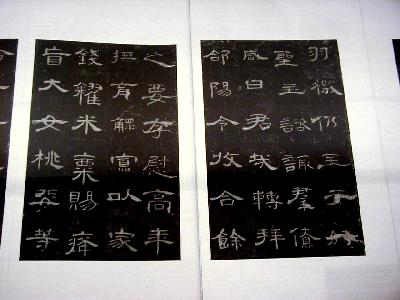 羽檄仍至于時
聖主諮諏羣僚
咸曰君哉轉拜
郃陽令收合餘
之要存慰高年
撫育鰥寡以家
錢糴米粟賜癃
盲大女桃斐等